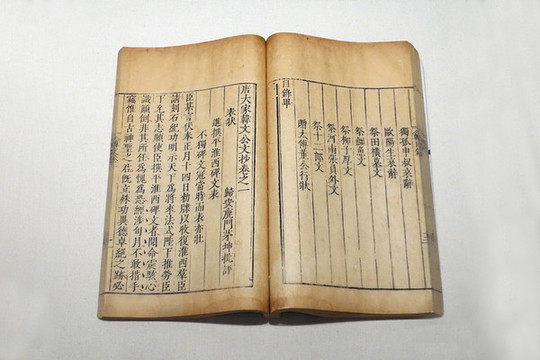 獨孤申叔哀辭
歐陽生哀辭
祭田橫墓文
祭鱷魚文
祭柳子厚文
祭河南張員外文
祭十二郎文
贈太傅董公行狀
目錄畢
唐大家韓文公文抄卷之一
歸安鹿門茅坤批評
表狀
進撰平淮西碑文表
不獨碑文冠當時而表亦壯
臣某言伏奉正月十四日勅牒以收復淮西羣臣
請刻石紀功明示天下為將來法式陛下推勞臣
下允其志願使臣撰平淮西碑文者聞命震駭心
識顛倒非其所任為愧為恐經涉旬月不敢措手
竊惟自古神聖之君既立殊功異德卓絕之跡必